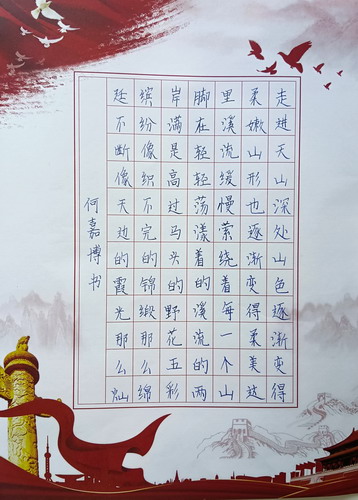 走进天山深处山色逐渐变得
柔嫩山形也逐渐变得柔美这
里溪流缓慢萦绕着每一个山
脚在轻轻荡漾着的溪流的两
岸满是高过马头的野花五彩
缤纷像织不完的锦缎那么绵
延不断像天边的霞光那么灿
何嘉博书